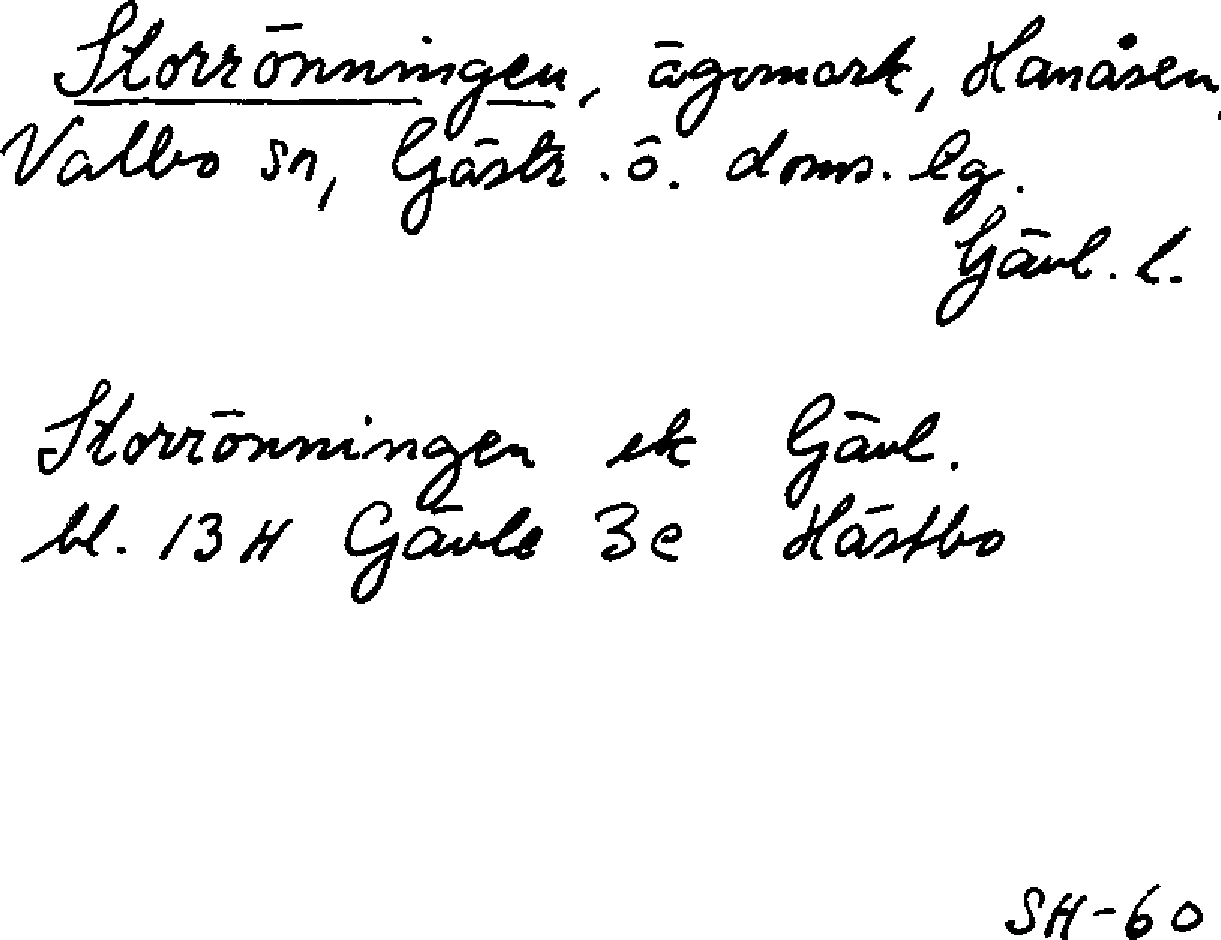 Storrönningen, ägomark, Hanåsen,
Valbo sn, Gästr. ö. doms. lg.
Gävl. l.
Storrönningen ek Gävl.
bl. 13 H Gävle 3e Hästbo
SH-60